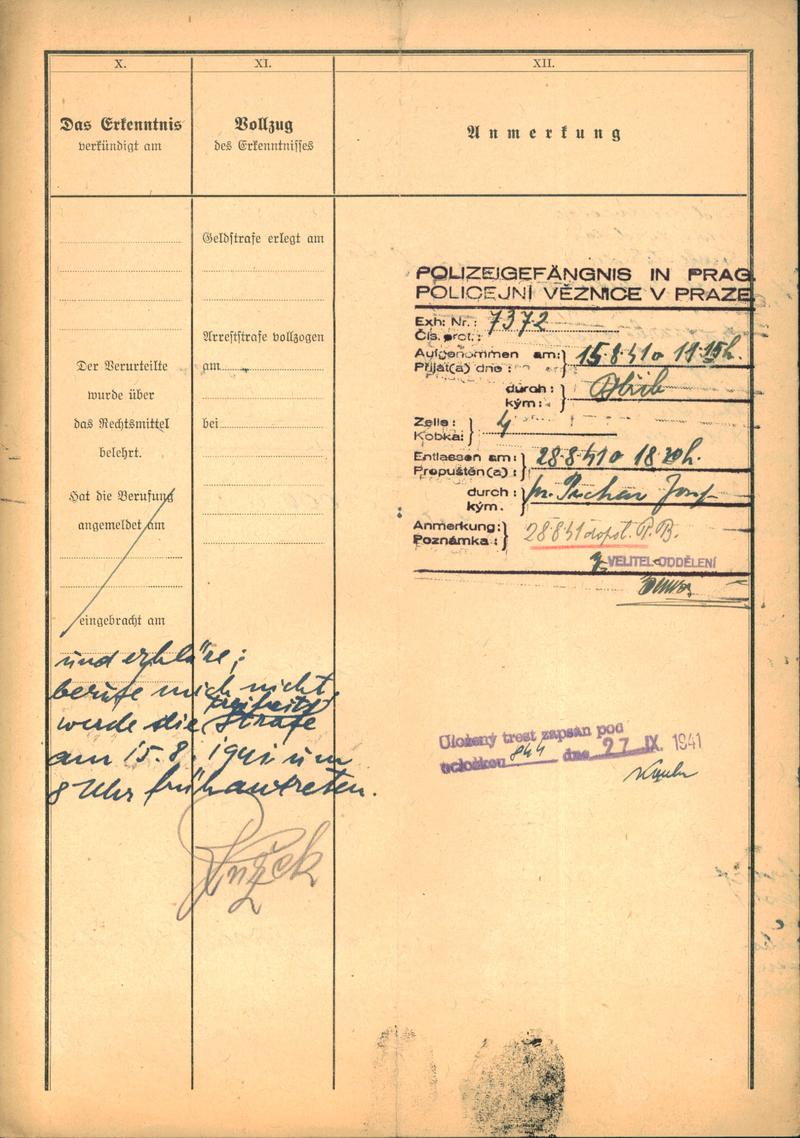 X.
Das Erkenntnis
verkündigt am
Der Verurteilte
wurde über
das Rechtsmittel
belehrt.
Hat die Berufung
angemeldet am
eingebracht am
und erkläre;
berufe mich nicht,
werde die Strafe
am 15.8.1941 um
8 Uhr früh antreten.
XI.
Vollzug
des Erkenntnisses
Geldstrafe erlegt am
Arreststrafe vollzogen
am
bei
XII.
Anmerkung
POLIZEIGEFÄNGNIS IN PRAG.
POLICEJNÍ VĚZNICE V PRAZE
Exh: Nr.: 7372
Čís. prot.:
Aufgenommen am: 15.8.41 o 19.15h.
Přijat(a) dne:
durch:
kým:
Zelle: 4
Kobka:
Entlassen am: 28.8.41 o 18 h.
Propuštěn(a):
durch: Josef
kým.
Anmerkung: 28.8.41 P.B.
Poznámka:
VELITEL ODDĚLENÍ
Uložený trest zapsán pod
položkou 844 dne 27 IX. 1941